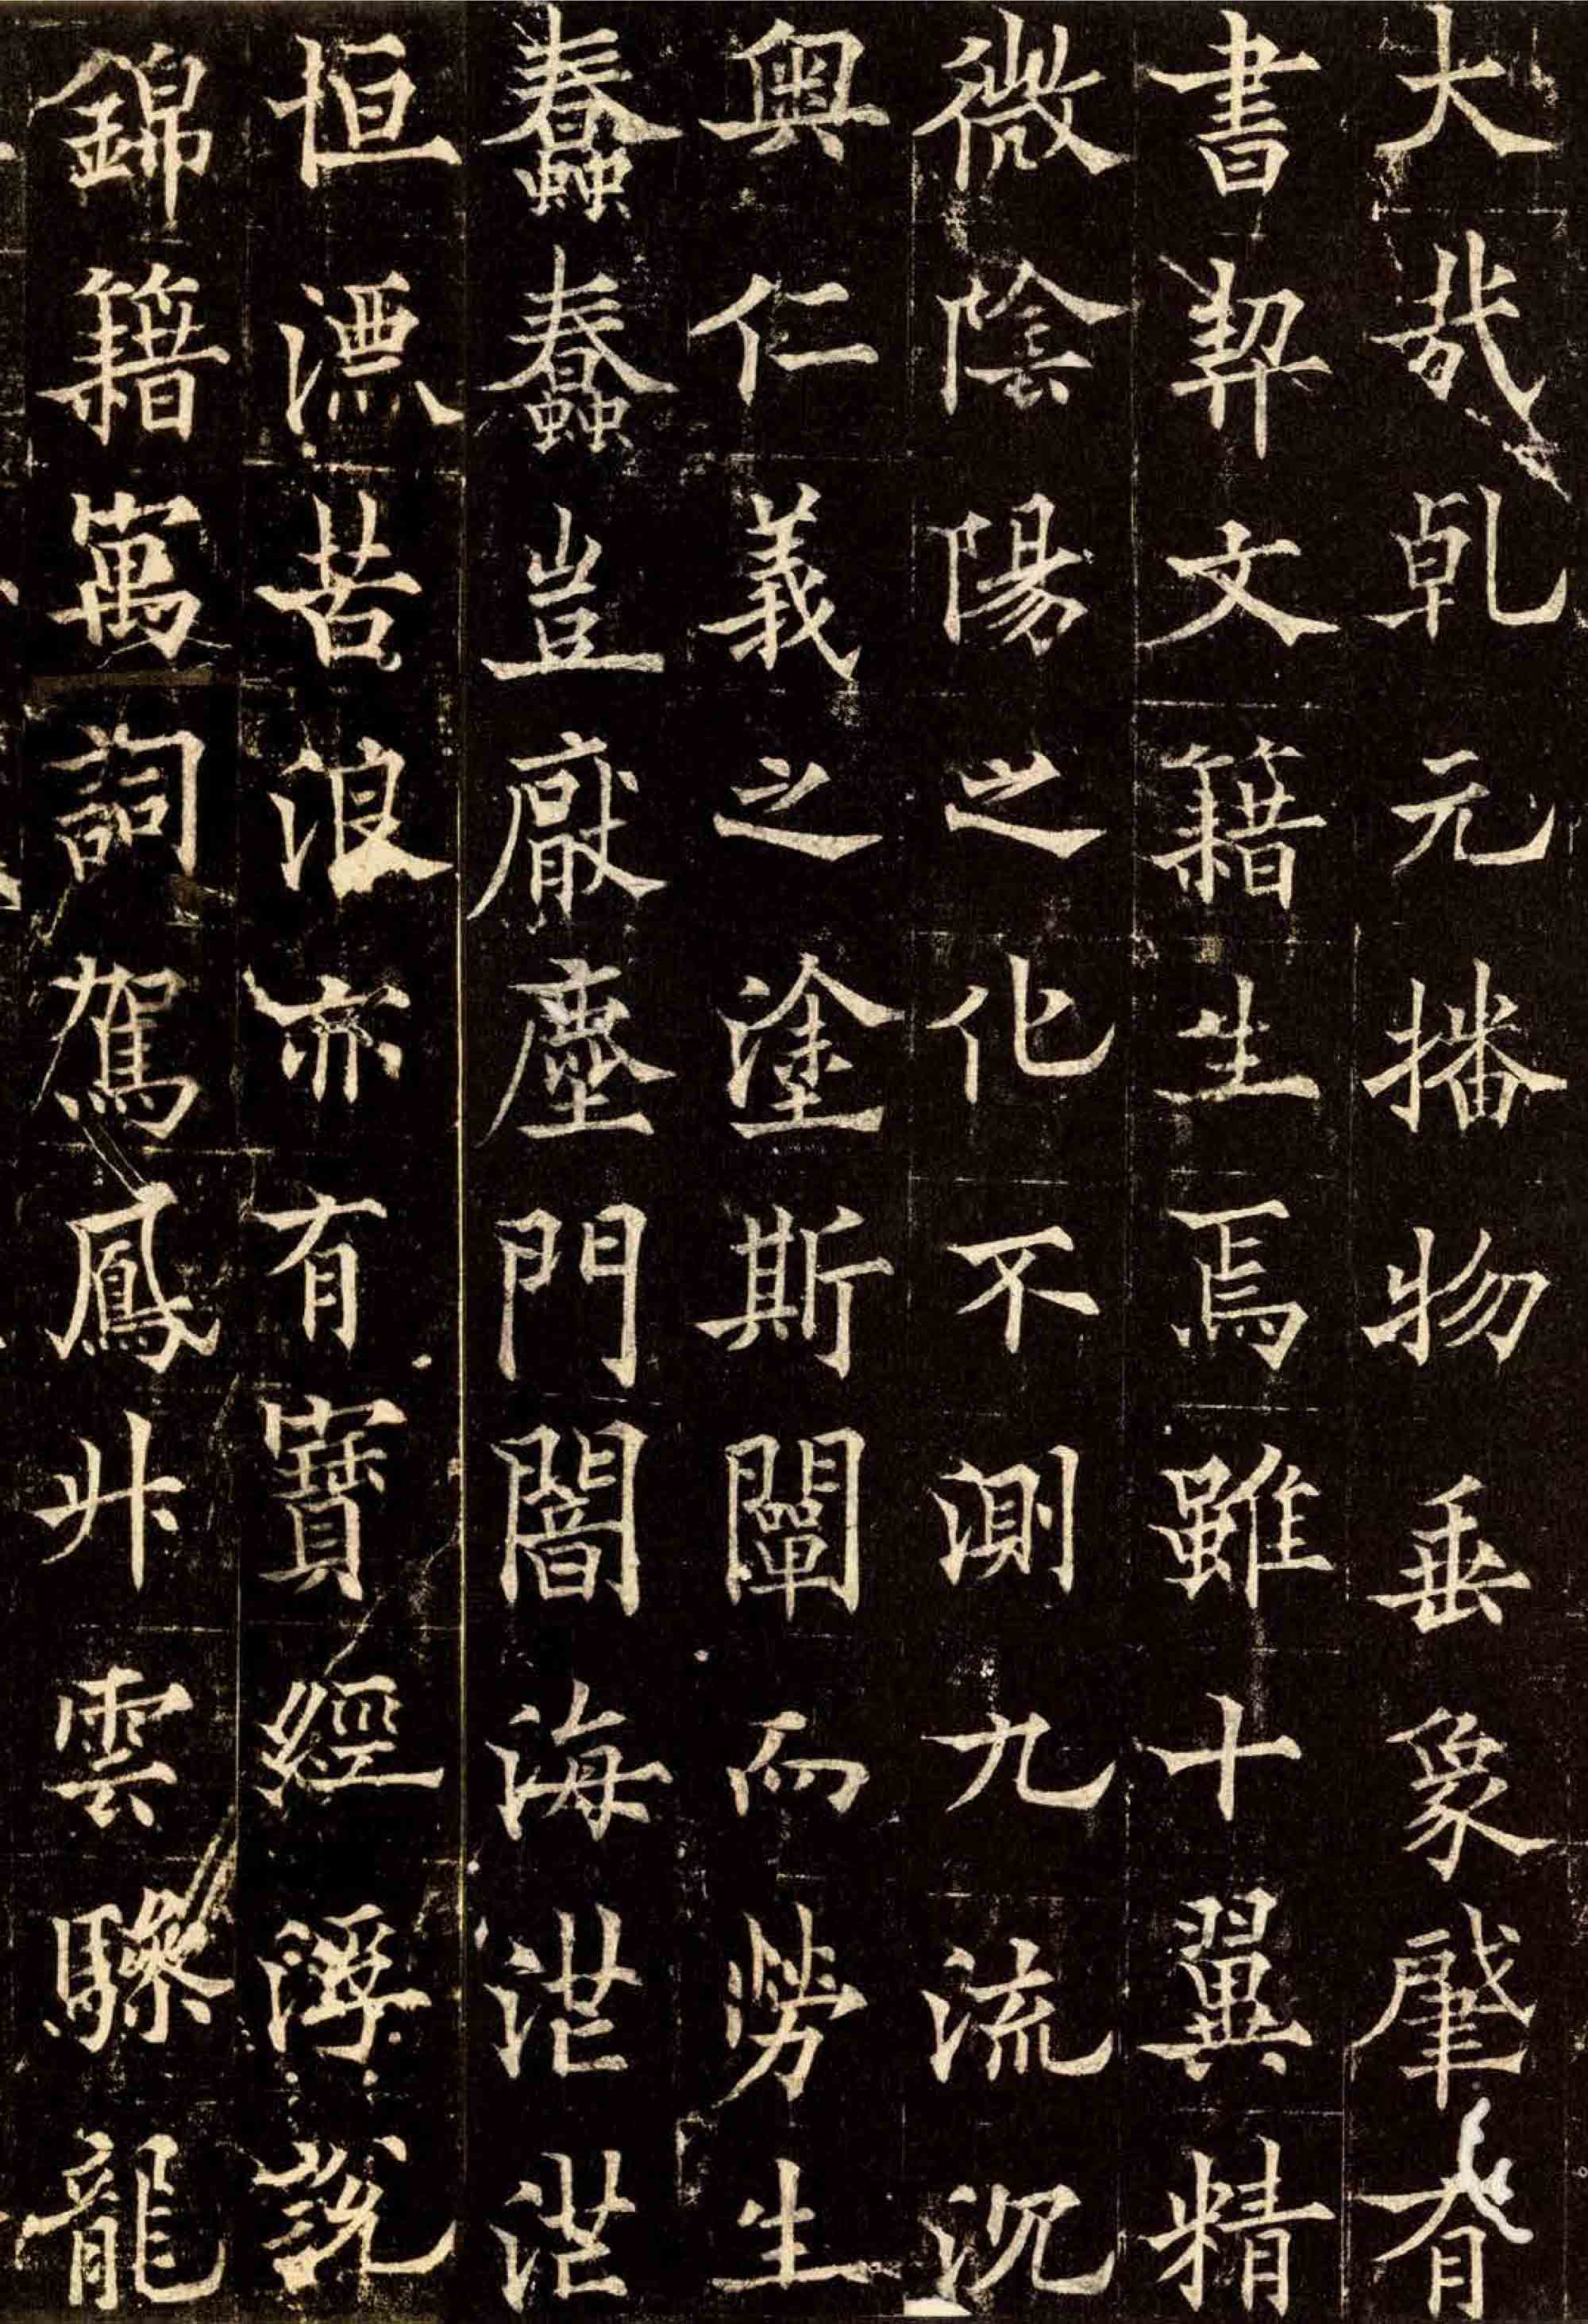 大哉乹元播物垂象肇有
書契文籍生焉雖十翼精
微陰陽之化不測九流沉
奥仁義之塗斯闡而勞生
蠢蠢豈厭塵門闇海茫茫
恒漂苦浪亦有寶經浮説
錦籍寓詞駕鳳升雲驂龍